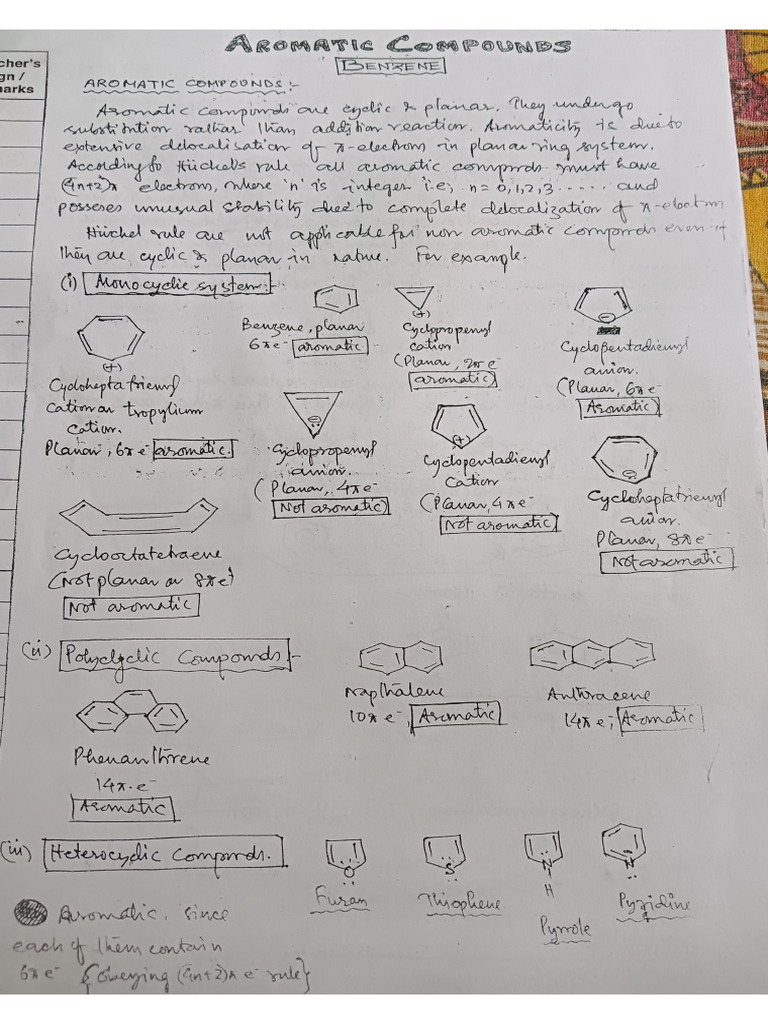 cher's
gn /
arks
AROMATIC COMPOUNDS
BENZENE
AROMATIC COMPOUNDS:-
Aromatic compounds are cyclic & planar. They undergo
substitution rather than addition reaction. Aromaticity is due to
extensive delocalisation of π-electrons in planar ring system.
According to Hückel's rule all aromatic compounds must have
(4n+2)π electrons, where 'n' is integer i.e; n = 0,1,2,3 ..... and
possess unusual stability due to complete delocalization of π-electron
Hückel rule are not applicable for non aromatic compounds even if
they are cyclic & planar in nature. For example.
(i) Monocyclic system:-
(+)
Cycloheptatrienyl
cation or tropylium
cation.
Planar, 6π e⁻ aromatic.
Benzene, planar
6π e⁻ aromatic
(+)
Cyclopropenyl
cation
(Planar, 2π e⁻
aromatic)
Cyclopentadienyl
anion.
(Planar, 6π e⁻
Aromatic)
Cyclopropenyl
anion.
(Planar, 4π e⁻
Not aromatic)
(+)
Cyclopentadienyl
Cation
(Planar, 4π e⁻
Not aromatic)
Cycloheptatrienyl
anion.
Planar, 8π e⁻
Not aromatic)
Cyclooctatetraene
(Not planar or 8π e⁻)
Not aromatic
(ii) Polycyclic Compounds:-
Napthalene
10π e⁻, Aromatic
Anthracene
14π e⁻, Aromatic
Phenanthrene
14π.e⁻
Aromatic
(iii) Heterocyclic Compounds.
O
Furan
S
Thiophene
N
H
Pyrrole
N
Pyridine
Aromatic, since
each of them contain
6π e⁻ {obeying (4n+2)π e⁻ rule}